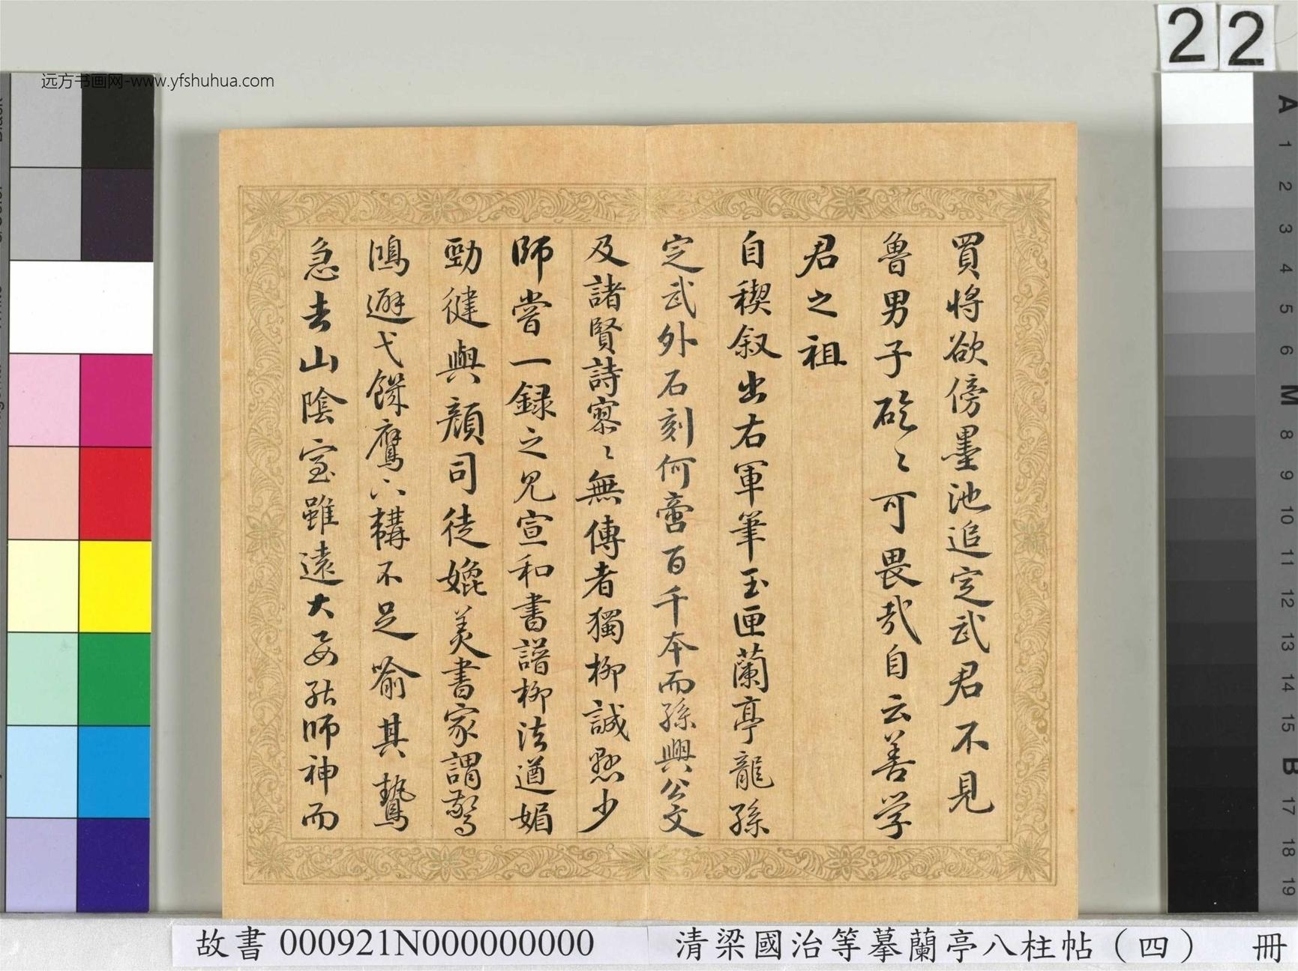 22
远方书画网-www.yfshuhua.com
買將欲傍墨池追定武君不見
魯男子硁〻可畏哉自云善学
君之祖
自禊叙出右軍筆玉匣蘭亭龍孫
定武外石刻何啻百千本而孫興公文
及諸賢詩寥〻無傳者獨柳誠懸少
師嘗一録之見宣和書譜柳法遒媚
勁健與顔司徒媲美書家謂驚
鴻避弋饑鷹下韝不足喻其鷙
急去山陰室雖遠大要能師神而
A 1 2 3 4 5 6 M 8 9 10 11 12 13 14 15 B 17 18 19
故書 000921N000000000 清梁國治等摹蘭亭八柱帖（四） 冊